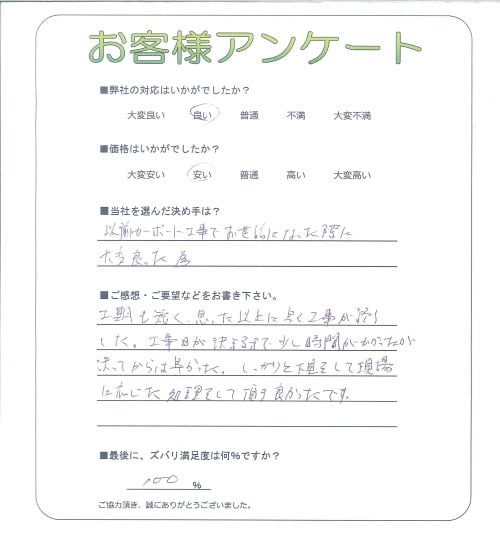 お客様アンケート
■弊社の対応はいかがでしたか？
大変良い 良い 普通 不満 大変不満
■価格はいかがでしたか？
大変安い 安い 普通 高い 大変高い
■当社を選んだ決め手は？
以前カーポート工事でお世話になった際に
大変良かった為
■ご感想・ご要望などをお書き下さい。
工期も短く、思った以上に早く工事が終了
した。工事日が決まるまで少し時間がかかったが
決ってからは早かった。しっかりと下見をして現場
に応じた処理をして頂き良かったです。
■最後に、ズバリ満足度は何％ですか？
100 ％
ご協力頂き、誠にありがとうございました。